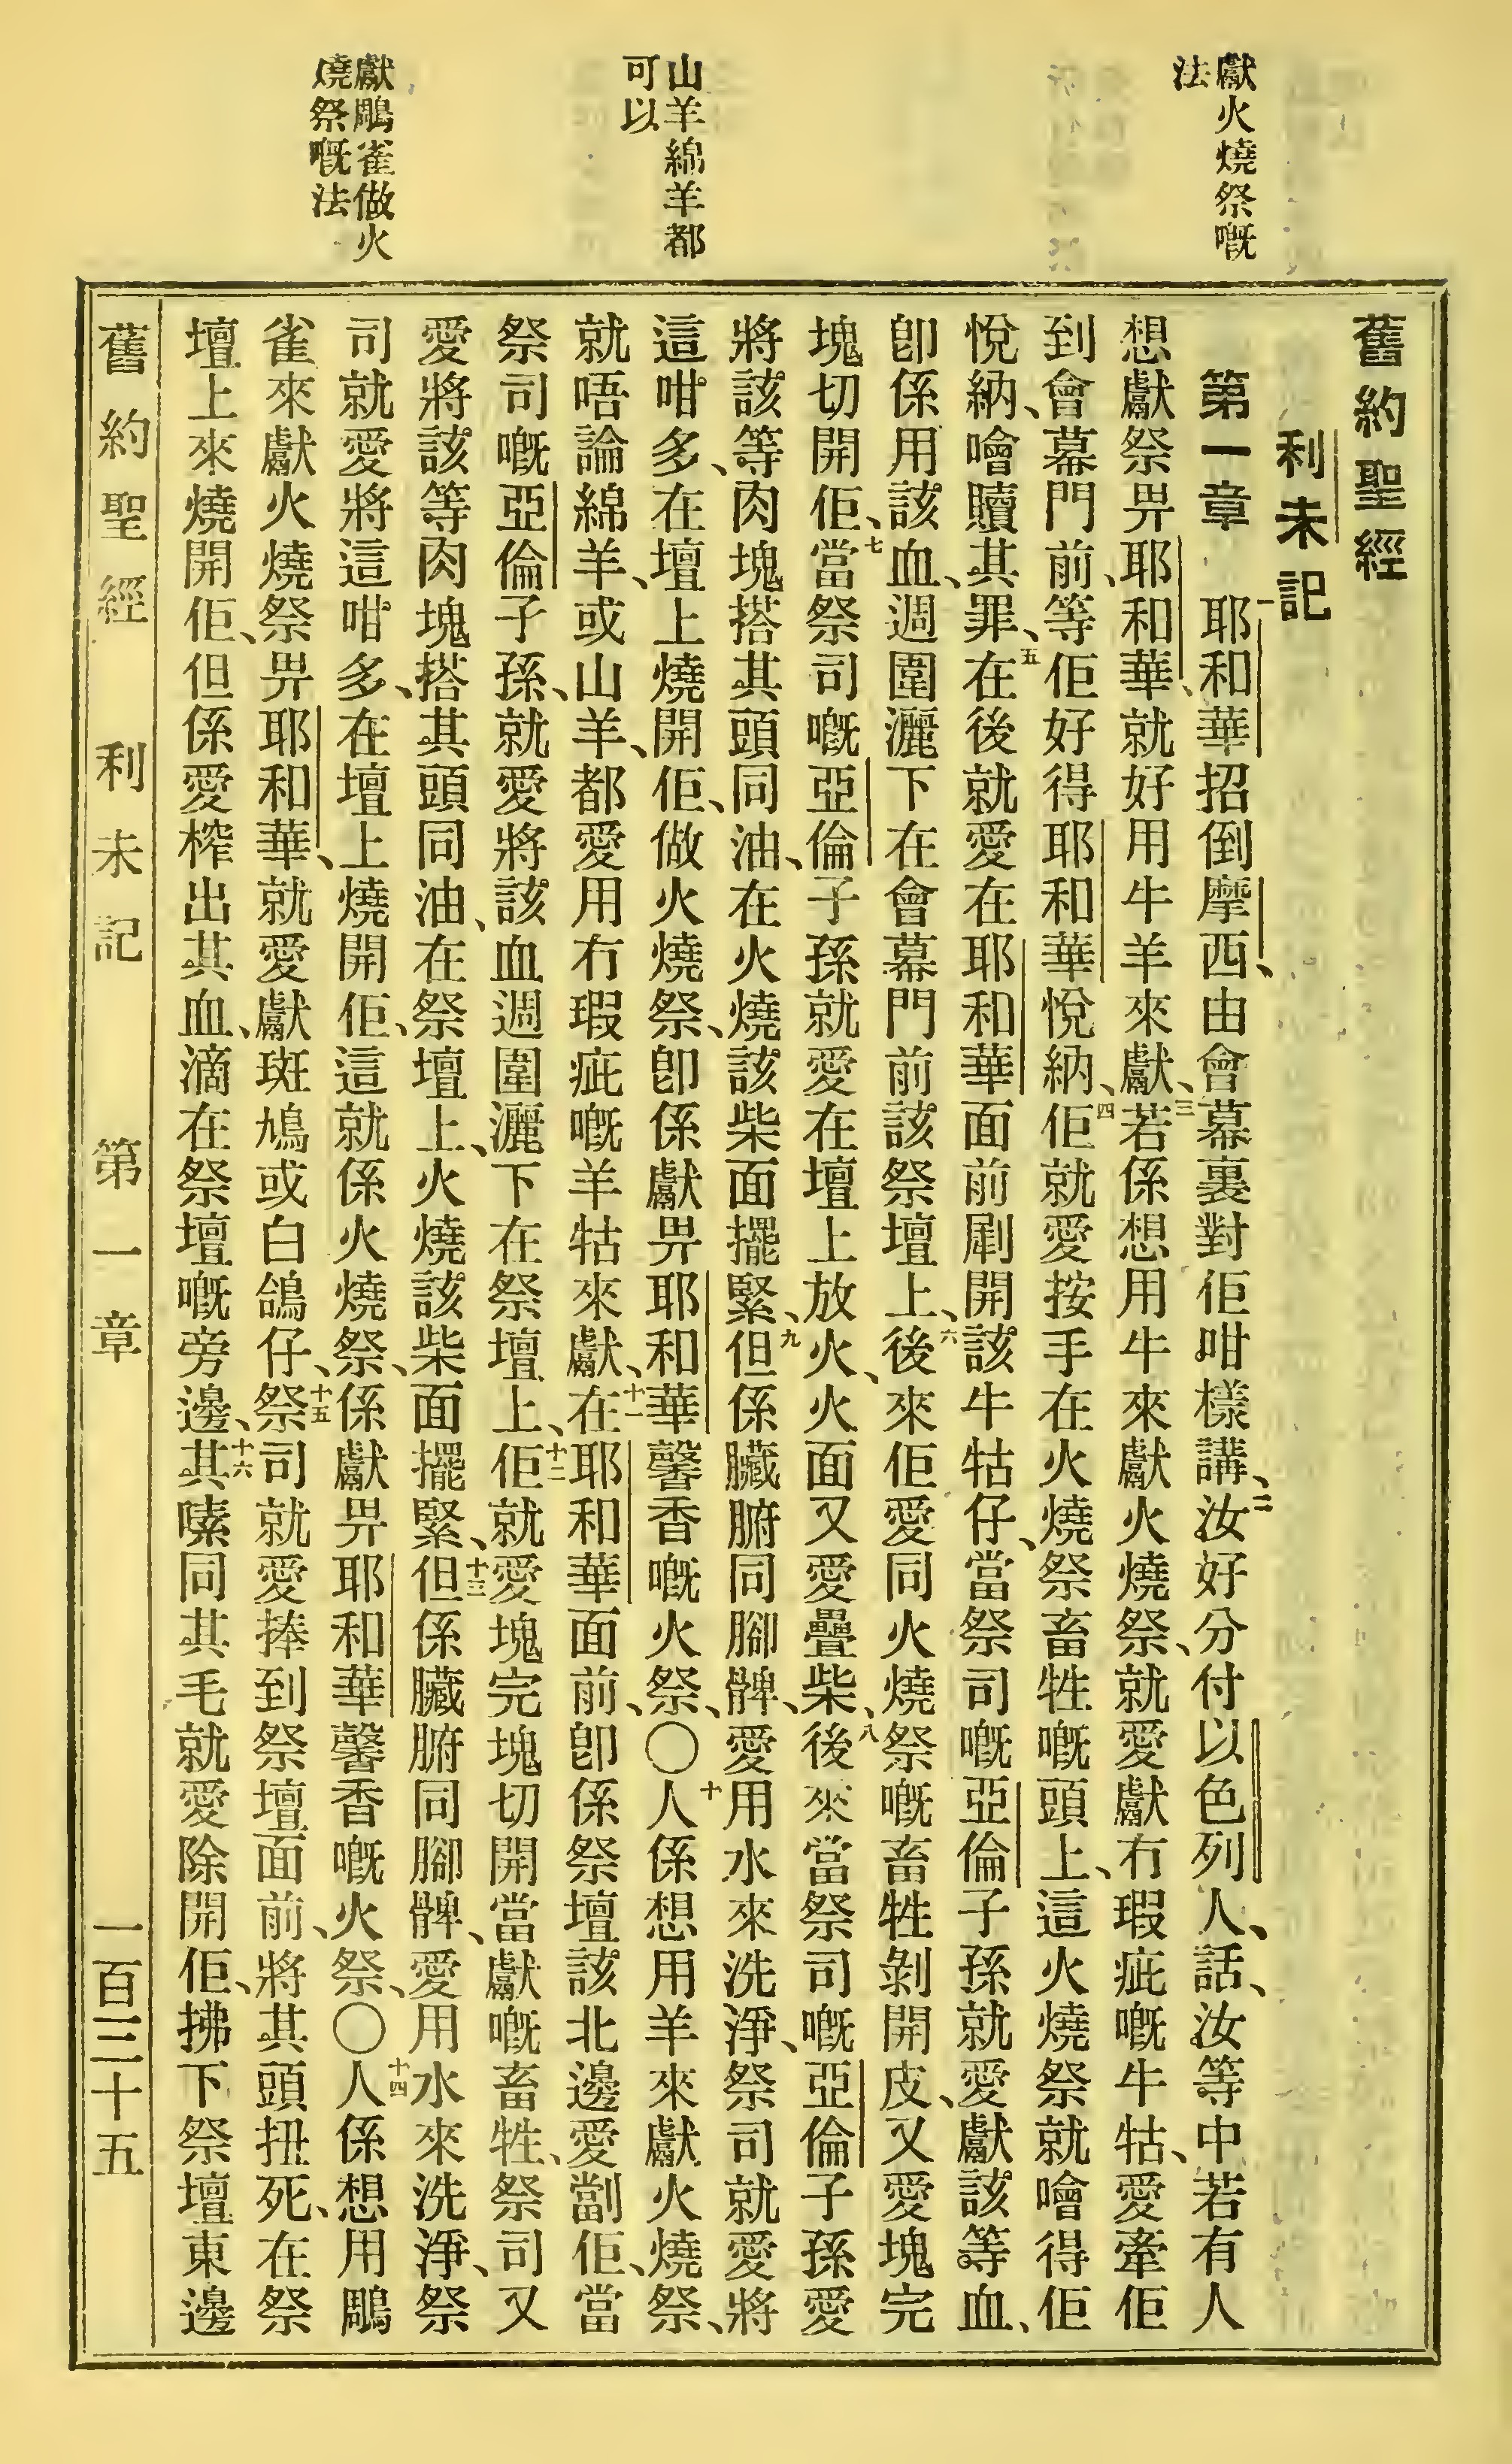 獻火燒祭嘅
法
山羊綿羊都
可以
獻鵰雀做火
燒祭嘅法
舊約聖經
利未記
第一章 一耶和華招倒摩西、由會幕裏對佢咁樣講、二汝好分付以色列人、話、汝等中若有人
想獻祭畀耶和華、就好用牛羊來獻、三若係想用牛來獻火燒祭、就愛獻冇瑕疵嘅牛牯、愛牽佢
到會幕門前、等佢好得耶和華悅納、四佢就愛按手在火燒祭畜牲嘅頭上、這火燒祭就噲得佢
悅納、噲贖其罪、五在後就愛在耶和華面前㓾開該牛牯仔、當祭司嘅亞倫子孫就愛獻該等血、
卽係用該血、週圍灑下在會幕門前該祭壇上、六後來佢愛同火燒祭嘅畜牲剝開皮、又愛塊完
塊切開佢、七當祭司嘅亞倫子孫就愛在壇上放火、火面又愛疊柴、八後來當祭司嘅亞倫子孫愛
將該等肉塊搭其頭同油、在火燒該柴面擺緊、九但係臟腑同腳髀、愛用水來洗淨、祭司就愛將
這咁多、在壇上燒開佢、做火燒祭、卽係獻畀耶和華馨香嘅火祭、〇十人係想用羊來獻火燒祭、
就唔論綿羊、或山羊、都愛用冇瑕疵嘅羊牯來獻、十一在耶和華面前、卽係祭壇該北邊愛劏佢、當
祭司嘅亞倫子孫、就愛將該血週圍灑下在祭壇上、十二佢就愛塊完塊切開當獻嘅畜牲、祭司又
愛將該等肉塊搭其頭同油、在祭壇上、火燒該柴面擺緊、十三但係臟腑同腳髀、愛用水來洗淨、祭
司就愛將這咁多、在壇上燒開佢、這就係火燒祭、係獻畀耶和華馨香嘅火祭、〇十四人係想用鵰
雀來獻火燒祭畀耶和華、就愛獻斑鳩或白鴿仔、十五祭司就愛捧到祭壇面前、將其頭扭死、在祭
壇上來燒開佢、但係愛榨出其血、滴在祭壇嘅旁邊、十六其嗉同其毛就愛除開佢、拂下祭壇東邊
舊約聖經 利未記 第一章 一百三十五